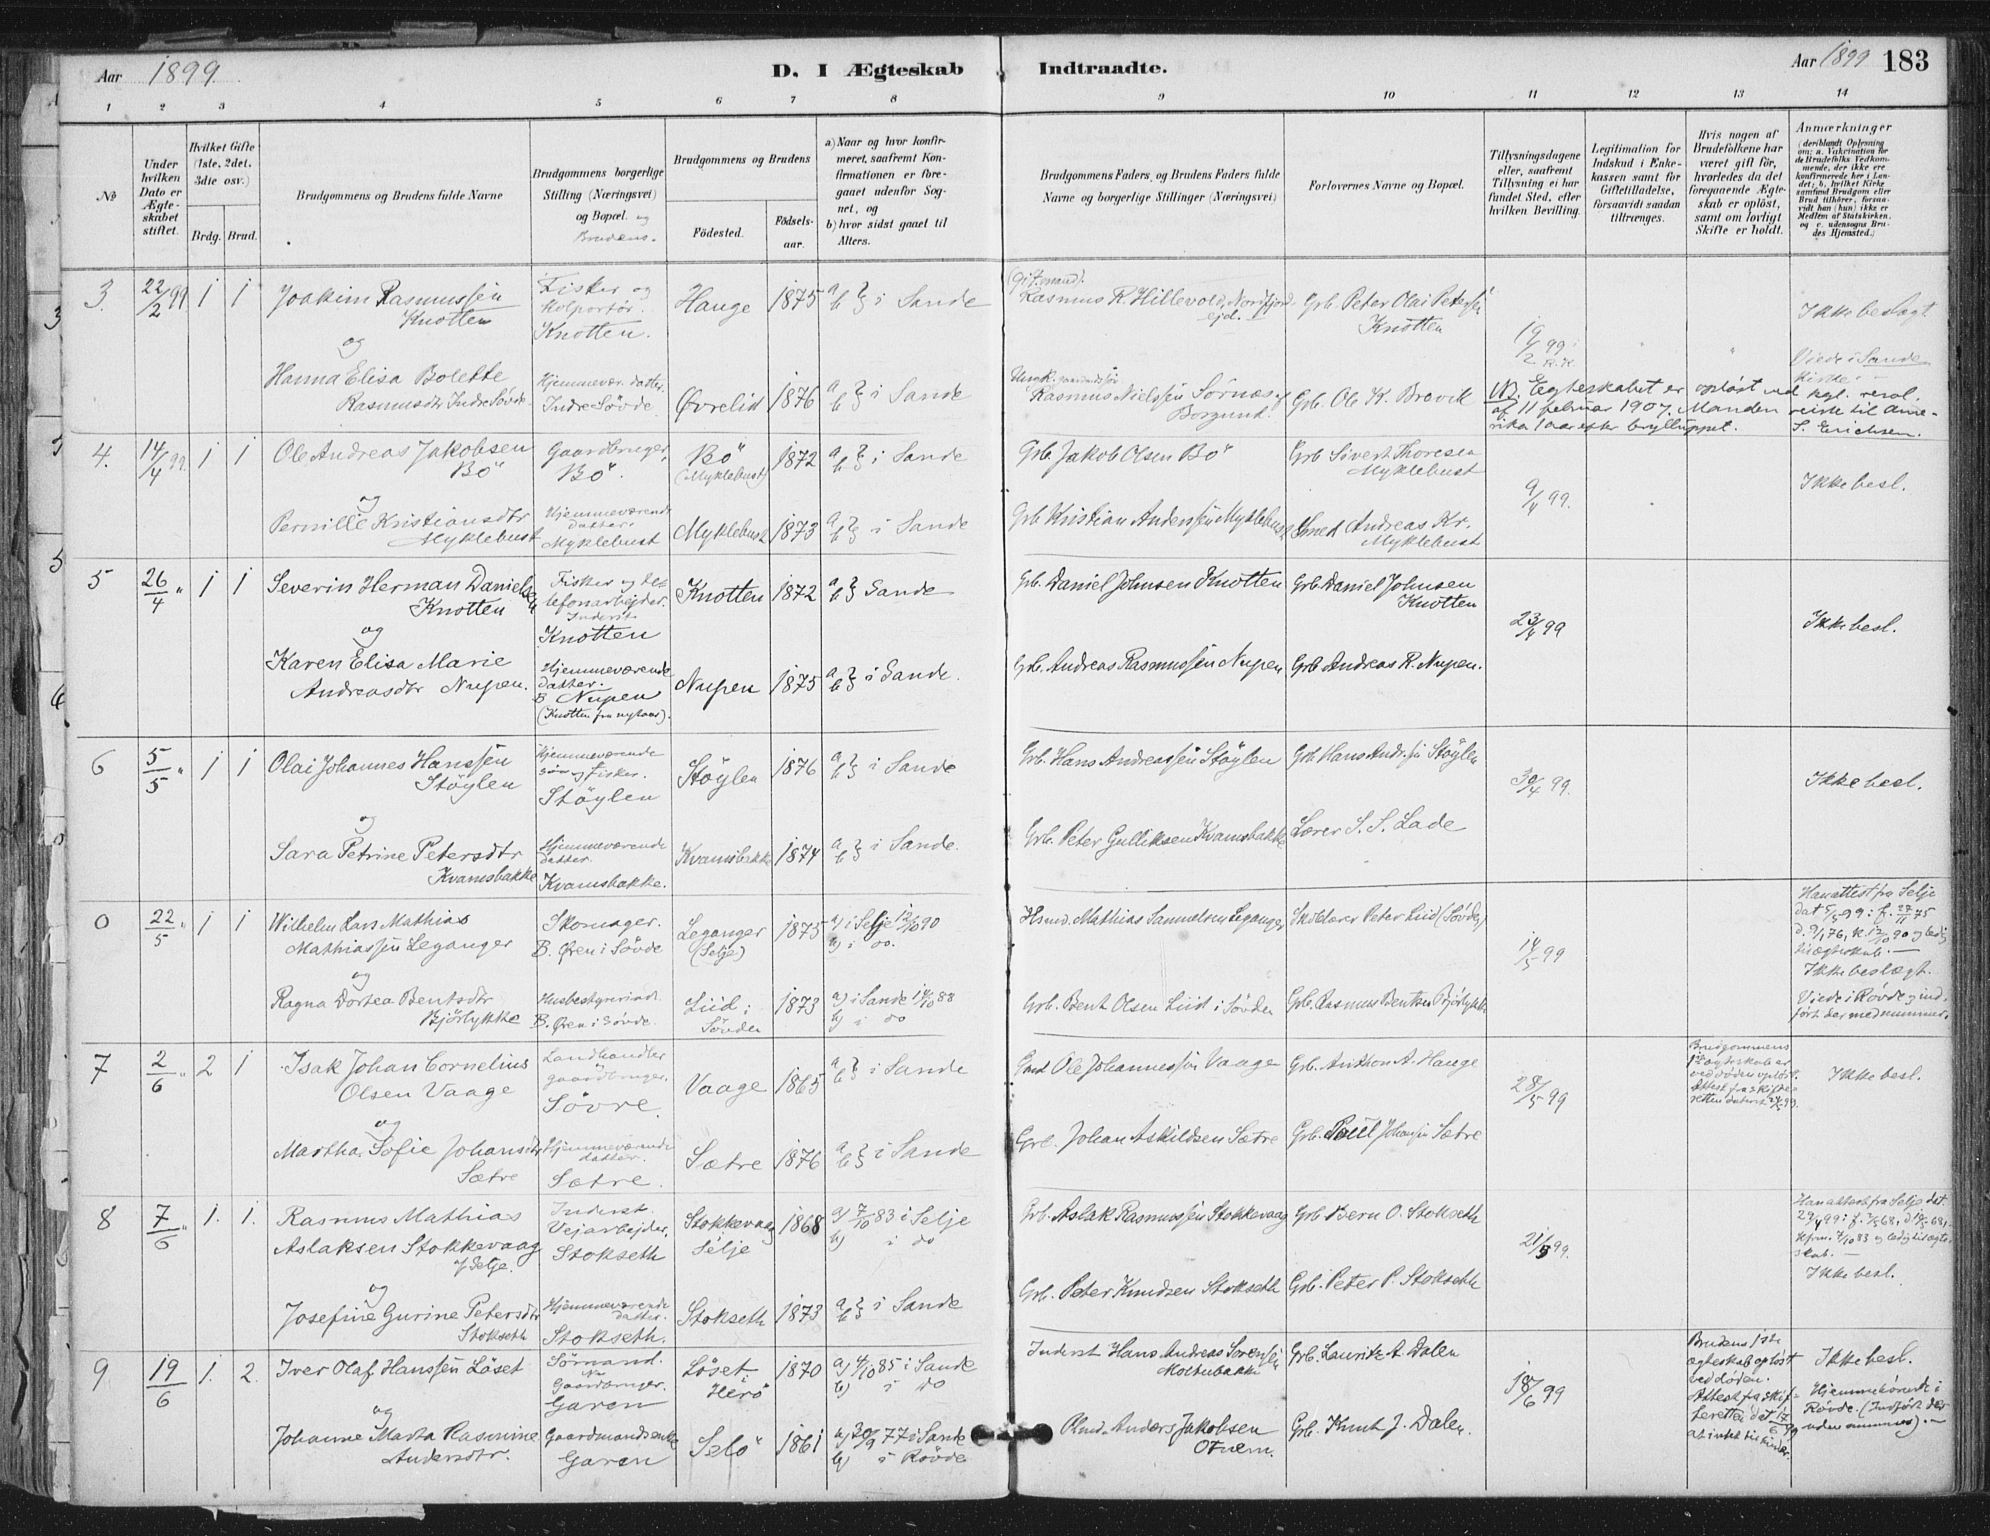 Aar 1899.
D. I Ægteskab Indtraadte.
Aar 1899 183
1 2 3 4 5 6 7 8 9 10 11 12 13 14
No
Under hvilken Dato er Ægteskabet stiftet.
Hvilket Gifte (1ste, 2det, 3die osv.)
Brdg. Brud.
Brudgommens og Brudens fulde Navne
Brudgommens borgerlige Stilling (Næringsvei) og Bopæl. og Brudens.
Brudgommens og Brudens
Fødested. Fødselsaar.
a) Naar og hvor konfirmeret, saafremt Konfirmationen er foregaaet udenfor Sognet, og
b) hvor sidst gaaet til Alters.
Brudgommens Faders, og Brudens Faders fulde Navne og borgerlige Stillinger (Næringsvei)
Forlovernes Navne og Bopæl.
Tillysningsdagene eller, saafremt Tillysning ei har fundet Sted, efter hvilken Bevilling.
Legitimation for Indskud i Enkekassen samt for Giftetilladelse, forsaavidt saadan tiltrænges.
Hvis nogen af Brudefolkene har været gift før, hvorledes da det foregaaende Ægteskab er opløst, samt om lovligt Skifte er holdt.
Anmærkninger (deriblandt Oplysning om: a. Vakcination for de Brudefolks Vedkommende, der ikke ere konfirmerede her i Landet; b. hvilket Kirkesamfund Brudgom eller Brud tilhører, forsaavidt han (hun) ikke er Medlem af Statskirken, og c. udensogns Brudes Hjemsted.)
3. 22/2 99 1 1 Joakim Rasmussen Knotten
Fisker og Kolportør. Knotten.
Hauge 1875 a b } i Sande
(gift mand). Rasmus R. Hillevold, Nordfjordejd.
Grb Peter Olai Petersen Knotten
19/2 99
Ikke beslægt.
Viede i Sande Kirke.
og
Hanna Elisa Bolette Rasmusdtr Indre Søvde
Hjemmevær. datter. Indre Søvde.
Øvrelid 1876 a b } i Sande
Rasmus Nielssen Sørnes, Borgund.
Grb. Ole K. Brevik
NB. Egteskabet er opløst ved kgl. resol. af 11 februar 1907. Manden reiste til Amerika 1 aar efter brylluppet. S. Erichsen.
4. 14/4 99. 1 1 Ole Andreas Jakobsen Bö
Gaardbruger, Bö.
Bö (Myklebust) 1872 a b } i Sande
Grb Jakob Olsen Bö
Grb Sivert Thoresen Myklebust
9/4 99.
Ikke besl.
og
Pernille Kristiansdtr Myklebust
Hjemmeværende datter. Myklebust
Myklebust 1873 a b } i Sande
Grb Kristian Anderssen Myklebust
Smed Andreas Kr. Myklebust
5 26/4 " 1 1 Severin Herman Danielsen Knotten
Fisker og telefonarbejder. Inderst Knotten
Knotten 1872 a b } Sande
Grb. Daniel Johnsen Knotten
Grb. Daniel Johnsen Knotten
23/4 99
Ikke besl.
og
Karen Elisa Marie Andreasdtr Nupen.
Hjemmeværende datter. B. Nupen (Knotten fra nytaar).
Nupen 1875 a b } i Sande.
Grb. Andreas Rasmussen Nupen
Grb Andreas R. Nupen.
6 5/5 " 1 1 Olai Johannes Hanssen Stöylen
Hjemmeværende søn og Fisker. Stöylen
Stöylen 1876 a b } i Sande
Grb. Hans Andreassen Stöylen
Grb Hans Andr.sen Stöylen
30/4 99.
Ikke besl.
og
Sara Petrine Petersdtr Kvamsbakke
Hjemmeværende datter. Kvamsbakke.
Kvamsbakke 1874 a b } i Sande.
Grb. Peter Gulliksen Kvamsbakke
Lærer S. S. Lade
0 22/5 " 1 1 Wilhelm Lars Mathias Mathiassen Leganger
Skomager. B. Øren i Søvde
Leganger (Selje) 1875 a) i Selje 12/10 90 b) i do.
Husmd. Mathias Samuelsen Leganger
Skolelærer Peter Liid (Søvde)
14/5 99
Han attest fra Selje dat 5/5 99: f. 27/11 75 d. 9/1 76, k. 12/10 90 og ledig til ægteskab. — Ikke beslægt.
Viede i Røvde og indført der med nummer.
og
Ragna Dortea Bentsdtr Bjørlykke
Husbestyrerinde. B. Øren i Søvde.
Liid i Søvden 1873 a) i Sande 14/10 88 b) i do
Grb. Bent Olsen Liid i Søvden
Grb. Rasmus Bentsen Bjørlykke
7 2/6 " 2 1 Isak Johan Cornelius Olsen Vaage
Landhandler gaardbruger. Søvre.
Vaage 1865 a b } i Sande
Gmd Ole Johannessen Vaage
Grb. Anthon A. Hauge
28/5 99
Brudgommens 1. Ægteskab er ved døden opløst. Attest fra skifteretten dateret
Ikke besl.
og
Martha Sofie Johansdtr Sætre
Hjemmeværende datter. Sætre.
Sætre 1876 a b } i Sande
Grb. Johan Askildsen Sætre
Grb. Paul Johansen Sætre
8 7/6 " 1. 1. Rasmus Mathias Aslaksen Stokkevaag af Selje.
Inderst. Vejarbejder, Stokseth
Stokkevaag Selje 1868 a) 7/10 83 i Selje b) i do
Grb. Aslak Rasmussen Stokkevaag
Grb Bern O. Stokseth
21/5 99.
Han attest fra Selje dat 29/4 99: kfm. 7/10 83 og ledig til ægteskab. — Ikke besl.
og
Josefine Gurine Petersdtr Stokseth
Hjemmeværende datter. Stokseth.
Stokseth 1873 a b } i Sande
Grb. Peter Knudsen Stokseth
Grb. Peter P. Stokseth
9 19/6 1. 2. Iver Olaf Hanssen Löset
Sørmand. Nu Gaardbruger. Garen
Löset i Herö 1870 a) 4/10 85 i Sande b) i do
Inderst Hans Andreas Sørensen Moltubakk
Grb. Lauritz A. Dalen
18/6 99
Brudens 1ste ægteskab opløst ved døden. Attest fra skifteretten dat 17/6 99 at intet til hinder.
Ikke besl.
Hjemmehørende i Røvde. (Indført der uden nummer). —
og
Johanne Marta Rasmine Andersdtr.
Gaardmandsenke Garen
Selö 1861 a) 30/9 77 i Sande b) i Røvde
Anders Jakobsen
Grb. Knut J. Dalen.